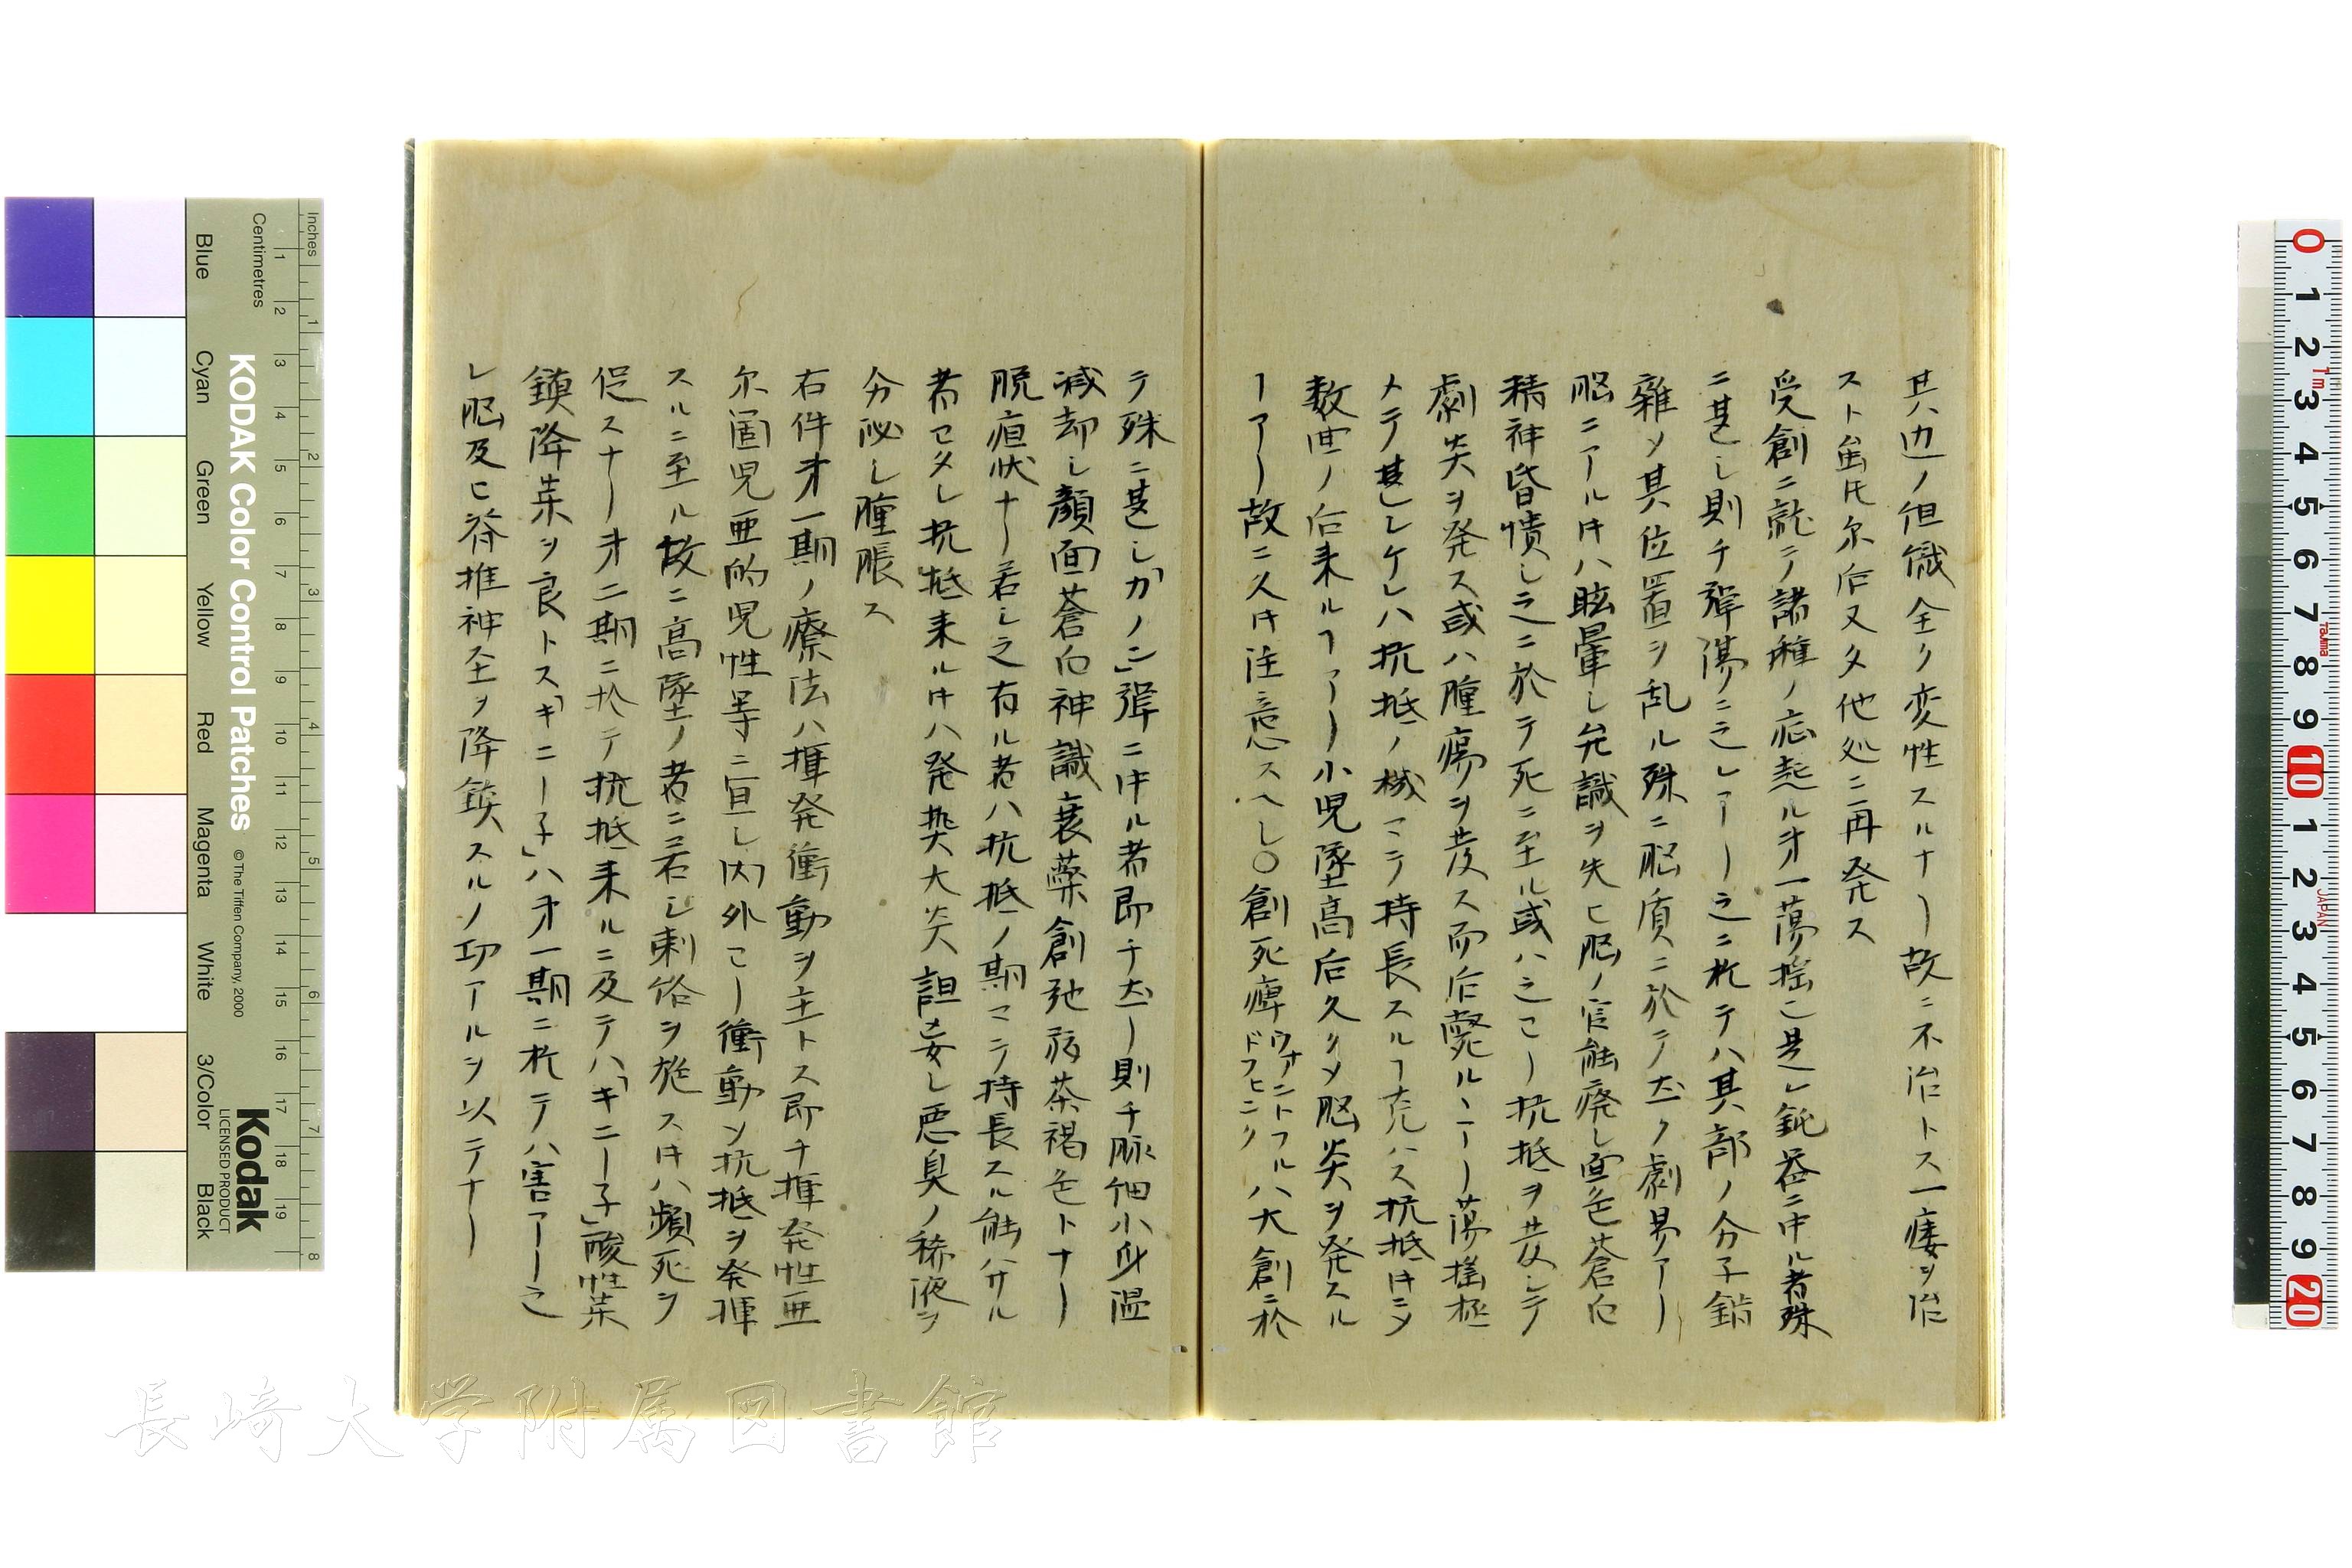 其辺ノ但織全ク変性スルナー故ニ不治トス一痿ヲ治
スト虽𪜈尓后又タ他処ニ再発ス
受創ニ就テ諸種ノ応起ル才一蕩揺こ是レ鈍器ニ中ル者殊
ニ甚し則チ弾傷ニ之レアー之ニ於テハ其部ノ分子錯
雑メ其位置ヲ乱ル殊ニ脳質ニ於テ尤ク劇昜アー
脳ニアル𪜈ハ眩暈し弁識ヲ失ヒ脳ノ官能廃し面色蒼白
精神昏憒し之ニ於テ死ニ至ル或ハ之こー抗抵ヲ発シテ
劇炎ヲ発ス或ハ腫瘍ヲ発ス而后斃ルヽニー蕩揺極
メテ甚しケレハ抗抵ノ機マテ持長スルヿ克ハス抗抵𪜈ニメ
数曲ノ后来ルヿアー小児墜高后久クメ脳炎ヲ発スル
ーアー故ニ久𪜈注意スヘし〇創死痺ウオントフルドフヒンクハ大創ニ於
テ殊ニ甚し「カノン」弾ニ中ル者即チ尤ー則チ脉細小身温
減却し顔面蒼白神識衰薬創弛疲茶褐色トナー
脱疽状ナー若し之有ル者ハ抗抵ノ期マテ持長スル能ハサル
者モタレ抗抵来ル𪜈ハ発熱大炎譫妄し悪臭ノ稀液ヲ
分泌し腫脹ス
右件才一期ノ療法ハ揮発衝動ヲ主トス即チ揮発性亜
尓箇児亜的児性等ニ宣し内外こー衝動ソ抗抵ヲ発揮
スルニ至ル故ニ高墜ノ者ニ若し刺絡ヲ施ス𪜈ハ頻死ヲ
促スナー才二期ニ於テ抗抵来ルニ及テハ「キニー子」酸性薬
鎮降薬ヲ良トス「キニー子」ハ才一期ニ於テハ害アー之
レ脳及ヒ脊推神全ヲ降鎮スルノ功アルヲ以テナー
Inches
Centimetres
KODAK Color Control Patches
© The Tiffen Company, 2000
Kodak
LICENSED PRODUCT
Blue Cyan Green Yellow Red Magenta White 3/Color Black
長崎大学附属図書館